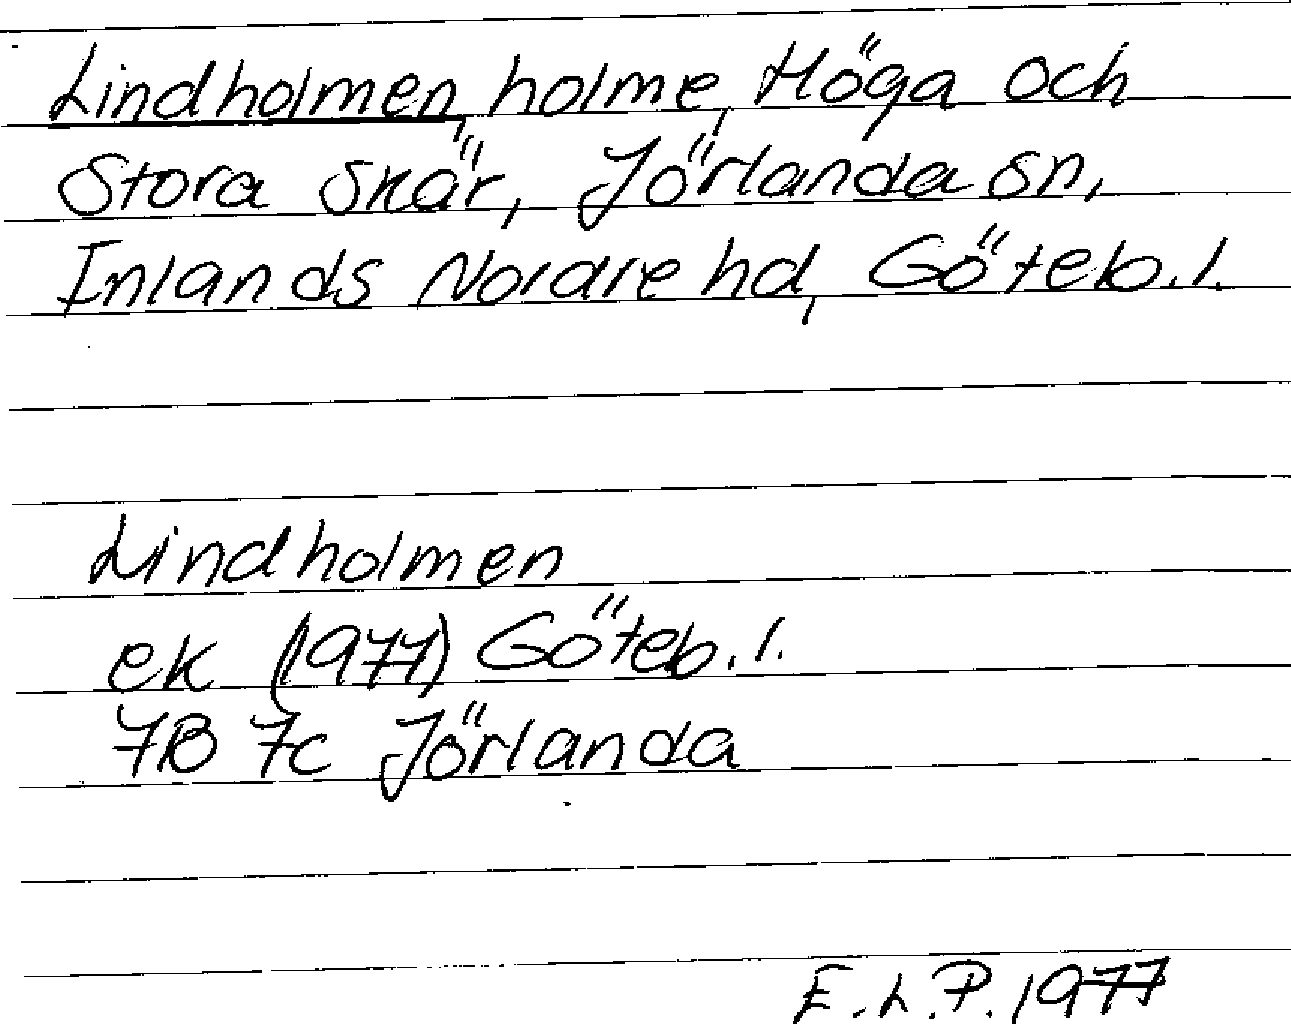 Lindholmen, holme, Höga och
Stora Skär, Jörlanda sn,
Inlands Nordre hd, Göteb.l.
Lindholmen
ek (1977) Göteb.l.
7B 7c Jörlanda
E.L.P. 1977